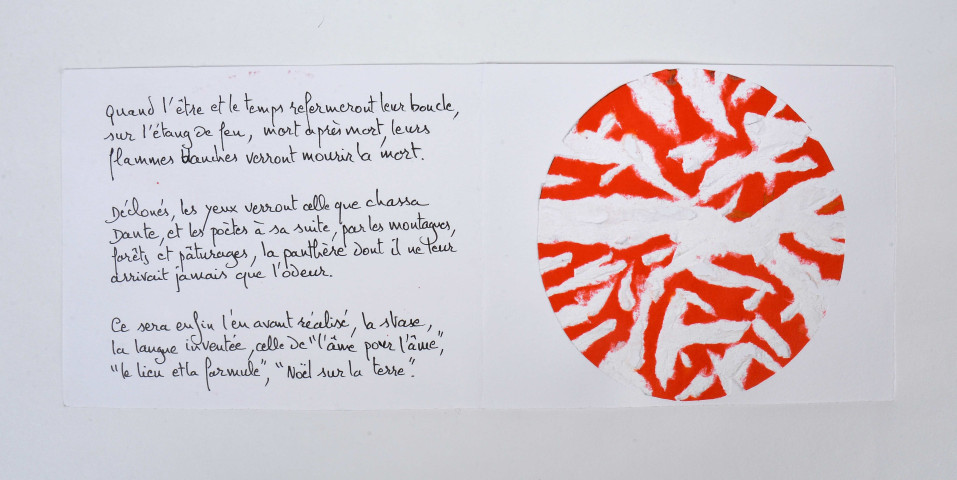 Quand l'être et le temps refermeront leur boucle,
sur l'étang de feu, mort après mort, leurs
flammes blanches verront mourir la mort.
Déclonés, les yeux verront celle que chassa
Dante, et les poètes à sa suite, par les montagnes,
forêts et pâturages, la panthère dont il ne leur
arrivait jamais que l'odeur.
Ce sera enfin l'en avant réalisé, la stase,
la langue inventée, celle de "l'âme pour l'âme",
"le lieu et la formule", "Noël sur la terre".